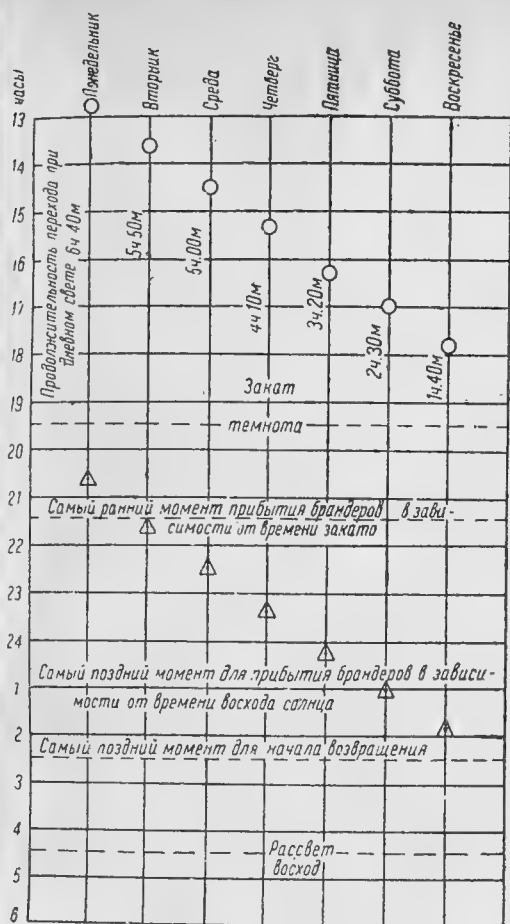 часы
Понедельник
Вторник
Среда
Четверг
Пятница
Суббота
Воскресенье
13
14
15
16
17
18
19
20
21
22
23
24
1
2
3
4
5
6
Продолжительность перехода при
дневном свете 6ч 40м
5ч 50м
5ч.00м
4ч 10м
3ч.20м
2ч.30м
1ч.40м
Закат
темнота
Самый ранний момент прибытия брандеров в зави-
симости от времени закато
Самый поздний момент для прибытия брандеров в зависи-
мости от времени восхода солнца
Самый поздний момент для начала возвращения
Рассвет
восход